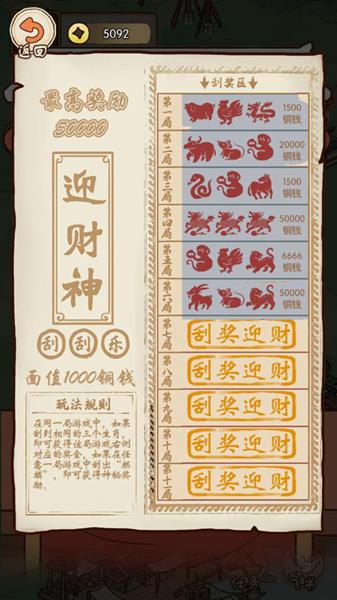 返回
5092
最高奖励
50000
迎财神
刮刮乐
面值1000铜钱
玩法规则
在同一局游戏中，如果
刮到相同的三个生肖，
即可获得该局游戏右侧
对应的奖金，如果在任
意一局游戏中刮出“麒
麟”，即可获得神秘奖
励。
刮奖区
第一局 1500铜钱
第二局 20000铜钱
第三局 1500铜钱
第四局 50000铜钱
第五局 6666铜钱
第六局 50000铜钱
第七局 刮奖迎财
第八局 刮奖迎财
第九局 刮奖迎财
第十局 刮奖迎财
第十一局 刮奖迎财